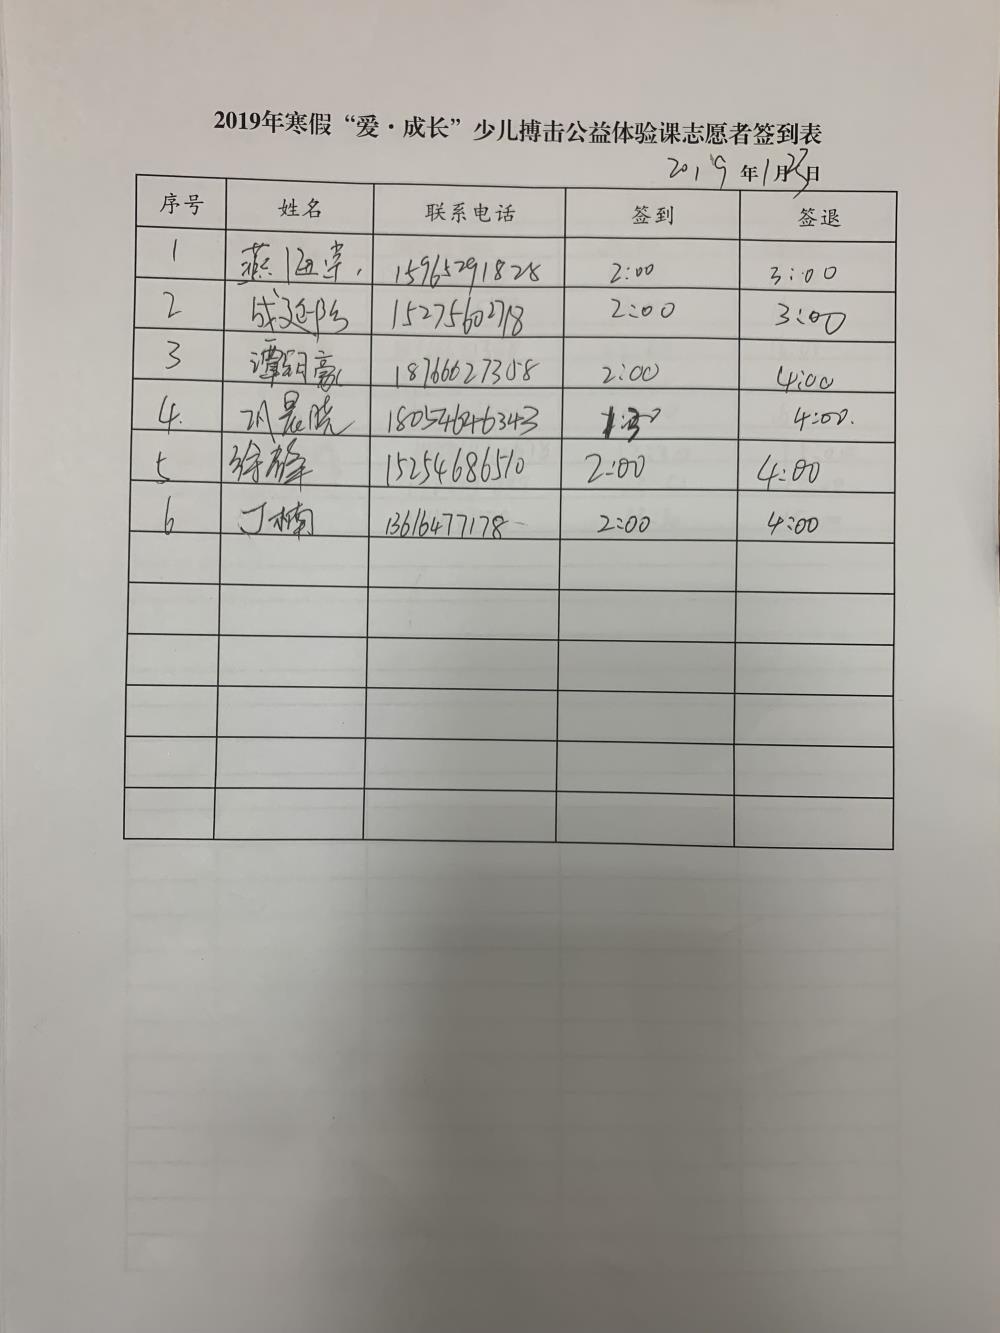 2019年寒假“爱·成长”少儿搏击公益体验课志愿者签到表
2019年1月23日
序号 姓名 联系电话 签到 签退
1 燕 15965291828 2:00 3:00
2 成延 15275602718 2:00 3:00
3 谭 豪 18766627358 2:00 4:00
4. 晨晓 18054646343 1:30 4:00.
5 徐 15254686510 2:00 4:00
6 丁楠 13616477178 2:00 4:00